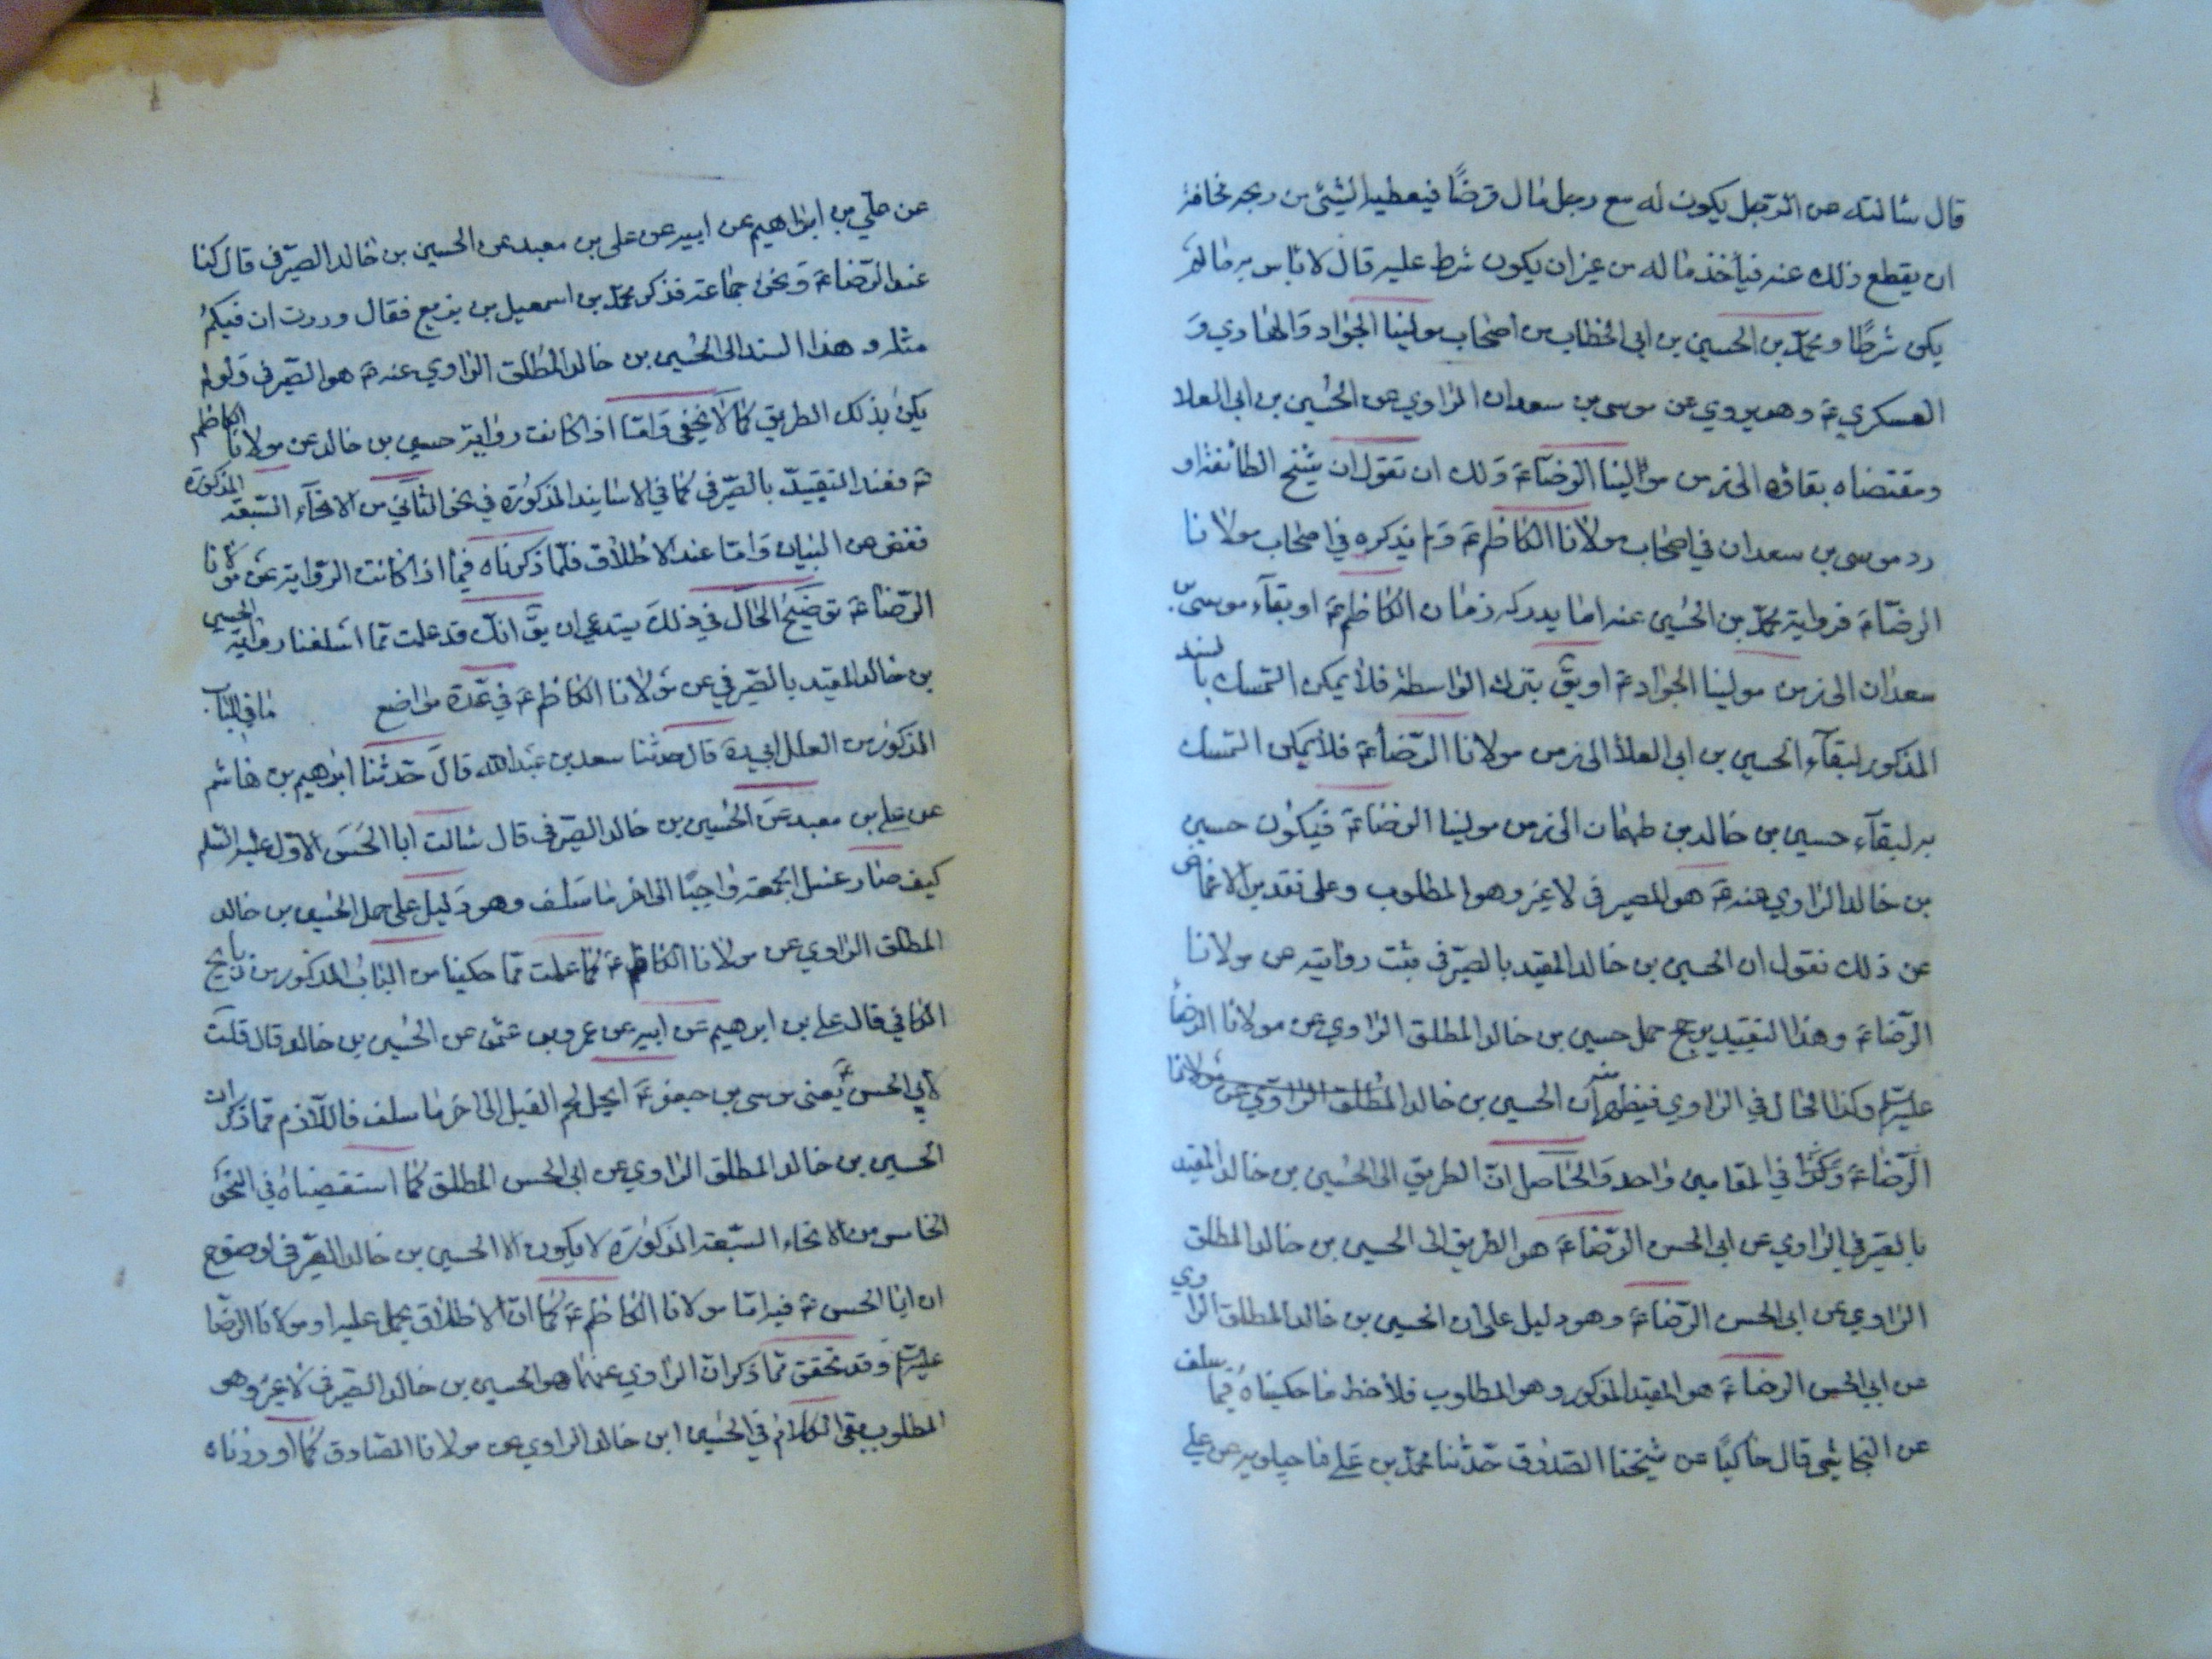 قال سألته عن الرجل يكون له مع رجل مال قرضًا فيعطيه الشيئ من ربحه مخافة
ان يقطع ذلك عنه فيأخذ ماله من غير ان يكون شرط عليه قال لا بأس به ما لم
يكن شرطًا ومحمد بن الحسين بن ابي الخطاب من اصحاب مولينا الجواد والهادي و
العسكري ع وهو يروي عن موسى بن سعدان الراوي عن الحسين بن ابي العلا
ومقتضاه بقاؤه الى زمن مولينا الرضاع ولك ان تقول ان شيخ الطائفة او
رد موسى بن سعدان في اصحاب مولانا الكاظم ع ولم يذكره في اصحاب مولانا
الرضاع فرواية محمد بن الحسين عنه اما يدركه زمان الكاظم ع او بقاء موسى بن
سعدان الى زمن مولينا الجواد ع او يق بترك الواسطة فلا يمكن التمسك بالسند
المذكور لبقاء الحسين بن ابي العلا الى زمن مولانا الرضاع فلا يمكن التمسك
به لبقاء حسين بن خالد بن طهمان الى زمن مولينا الرضاع فيكون حسين
بن خالد الراوي عنه ع هو الصيرفي لا غير وهو المطلوب وعلى تقدير الاغماض
عن ذلك نقول ان الحسين بن خالد المقيد بالصيرفي ثبت روايته عن مولانا
الرضاع وهذا التقييد يرجح حمل حسين بن خالد المطلق الراوي عن مولانا الرضا
عليه السلم وكذا الحال في الراوي فيظهر منه ان الحسين بن خالد المطلق الراوي عن مولانا
الرضاع في المقامين واحد والحاصل ان الطريق الى الحسين بن خالد المقيد
بالصيرفي الراوي عن ابي الحسن الرضاع هو الطريق الى الحسين بن خالد المطلق
الراوي عن ابي الحسن الرضاع وهو دليل على ان الحسين بن خالد المطلق الراوي
عن ابي الحسن الرضاع هو المقيد المذكور وهو المطلوب فلاحظ ما حكيناه فيما سلف
عن النجاشي قال حاكيًا عن شيخنا الصدوق حدثنا محمد بن علي ماجيلويه عن علي
عن علي بن ابراهيم عن ابيه عن علي بن معبد عن الحسين بن خالد الصيرفي قال كنا
عند الرضاع ونحن جماعة فذكر محمد بن اسمعيل بن بزيع فقال وددت ان فيكم
مثله وهذا السند الى الحسين بن خالد المطلق الراوي عنه ع هو الصيرفي ولو لم
يكن بذلك الطريق كما لا يخفى واما اذا كانت رواية حسين بن خالد عن مولانا الكاظم
ع فعند التقييد بالصيرفي كما في الاسانيد المذكورة في نحو الثاني من الانحاء السبعة المذكورة
فغني عن البيان واما عند الاطلاق فلما ذكرناه فيما اذا كانت الرواية عن مولانا
الرضاع توضيح الحال في ذلك يستدعي ان يق انك قد علمت مما اسلفنا رواية الحسين
بن خالد المقيد بالصيرفي عن مولانا الكاظم ع في عدة مواضع ما في الباب
المذكور من العلل ابي ره قال حدثنا سعد بن عبد الله قال حدثنا ابراهيم بن هاشم
عن علي بن معبد عن الحسين بن خالد الصيرفي قال سالت ابا الحسن الاول عليه السلم
كيف صار غسل الجمعة واجبًا الى اخر ما سلف وهو دليل على حمل الحسين بن خالد
المطلق الراوي عن مولانا الكاظم ع كما علمت مما حكينا من الباب المذكور من ذبايح
الكافي قال علي بن ابراهيم عن ابيه عن عمرو بن عثمن عن الحسين بن خالد قال قلت
لابي الحسن ع يعني موسى بن جعفر ع ايحل لحم الفيل الى اخر ما سلف فاللازم مما ذكر ان
الحسين بن خالد المطلق الراوي عن ابي الحسن المطلق كما استقصيناه في النحو
الخامس من الانحاء السبعة المذكورة لا يكون الا الحسين بن خالد الصيرفي لوضوح
ان ابا الحسن ع فيه اما مولانا الكاظم ع كما ان الاطلاق يحمل عليه او مولانا الرضا
عليه السلم وقد تحقق مما ذكر ان الراوي عنهما هو الحسين بن خالد الصيرفي لا غير وهو
المطلوب بقي الكلام في الحسين ابن خالد الراوي عن مولانا الصادق كما اوردناه